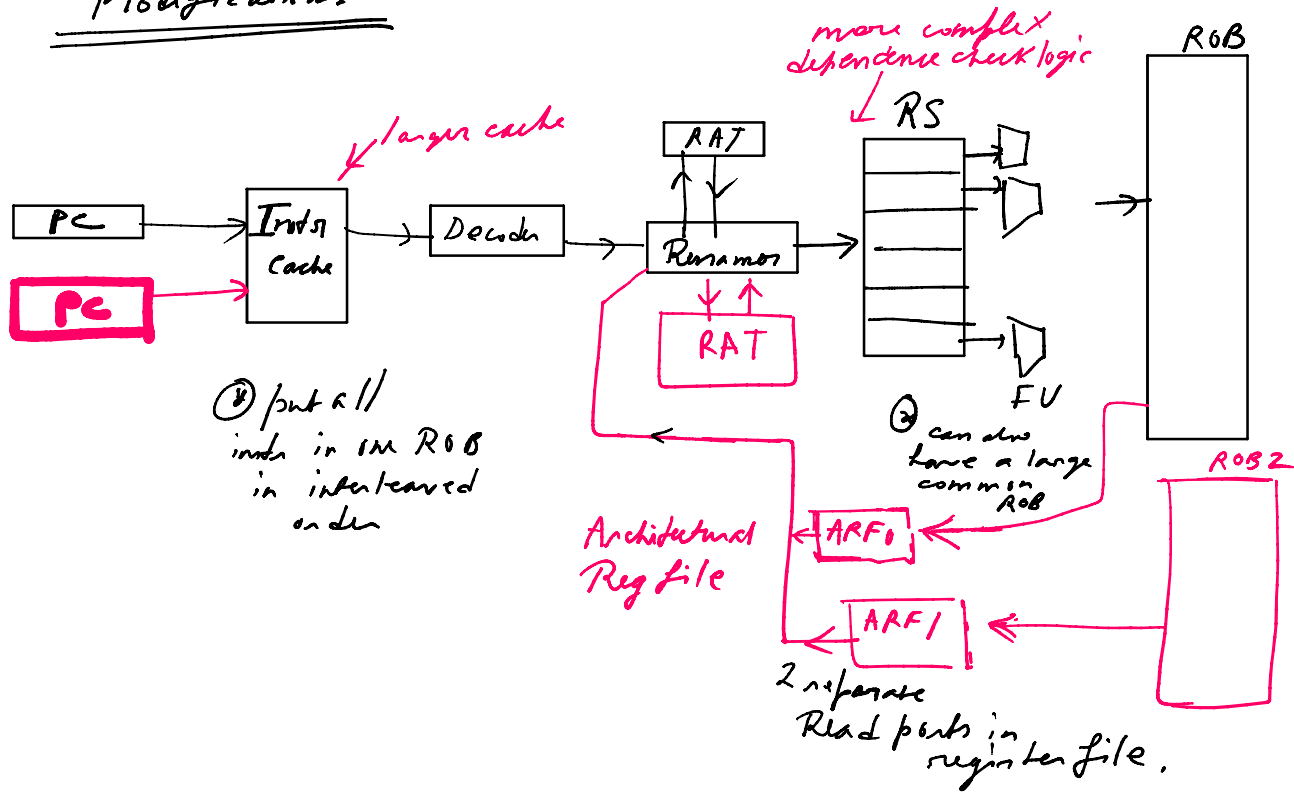 Modifications
more complex
dependence check logic
ROB
larger cache
RAT
RS
PC
Instr
Cache
Decoder
Renamer
PC
RAT
FU
① put all
instr in one ROB
in interleaved
order
② can also
have a large
common
ROB
ROB 2
Architectural
Reg file
ARF0
ARF1
2 separate
Read ports in
register file.